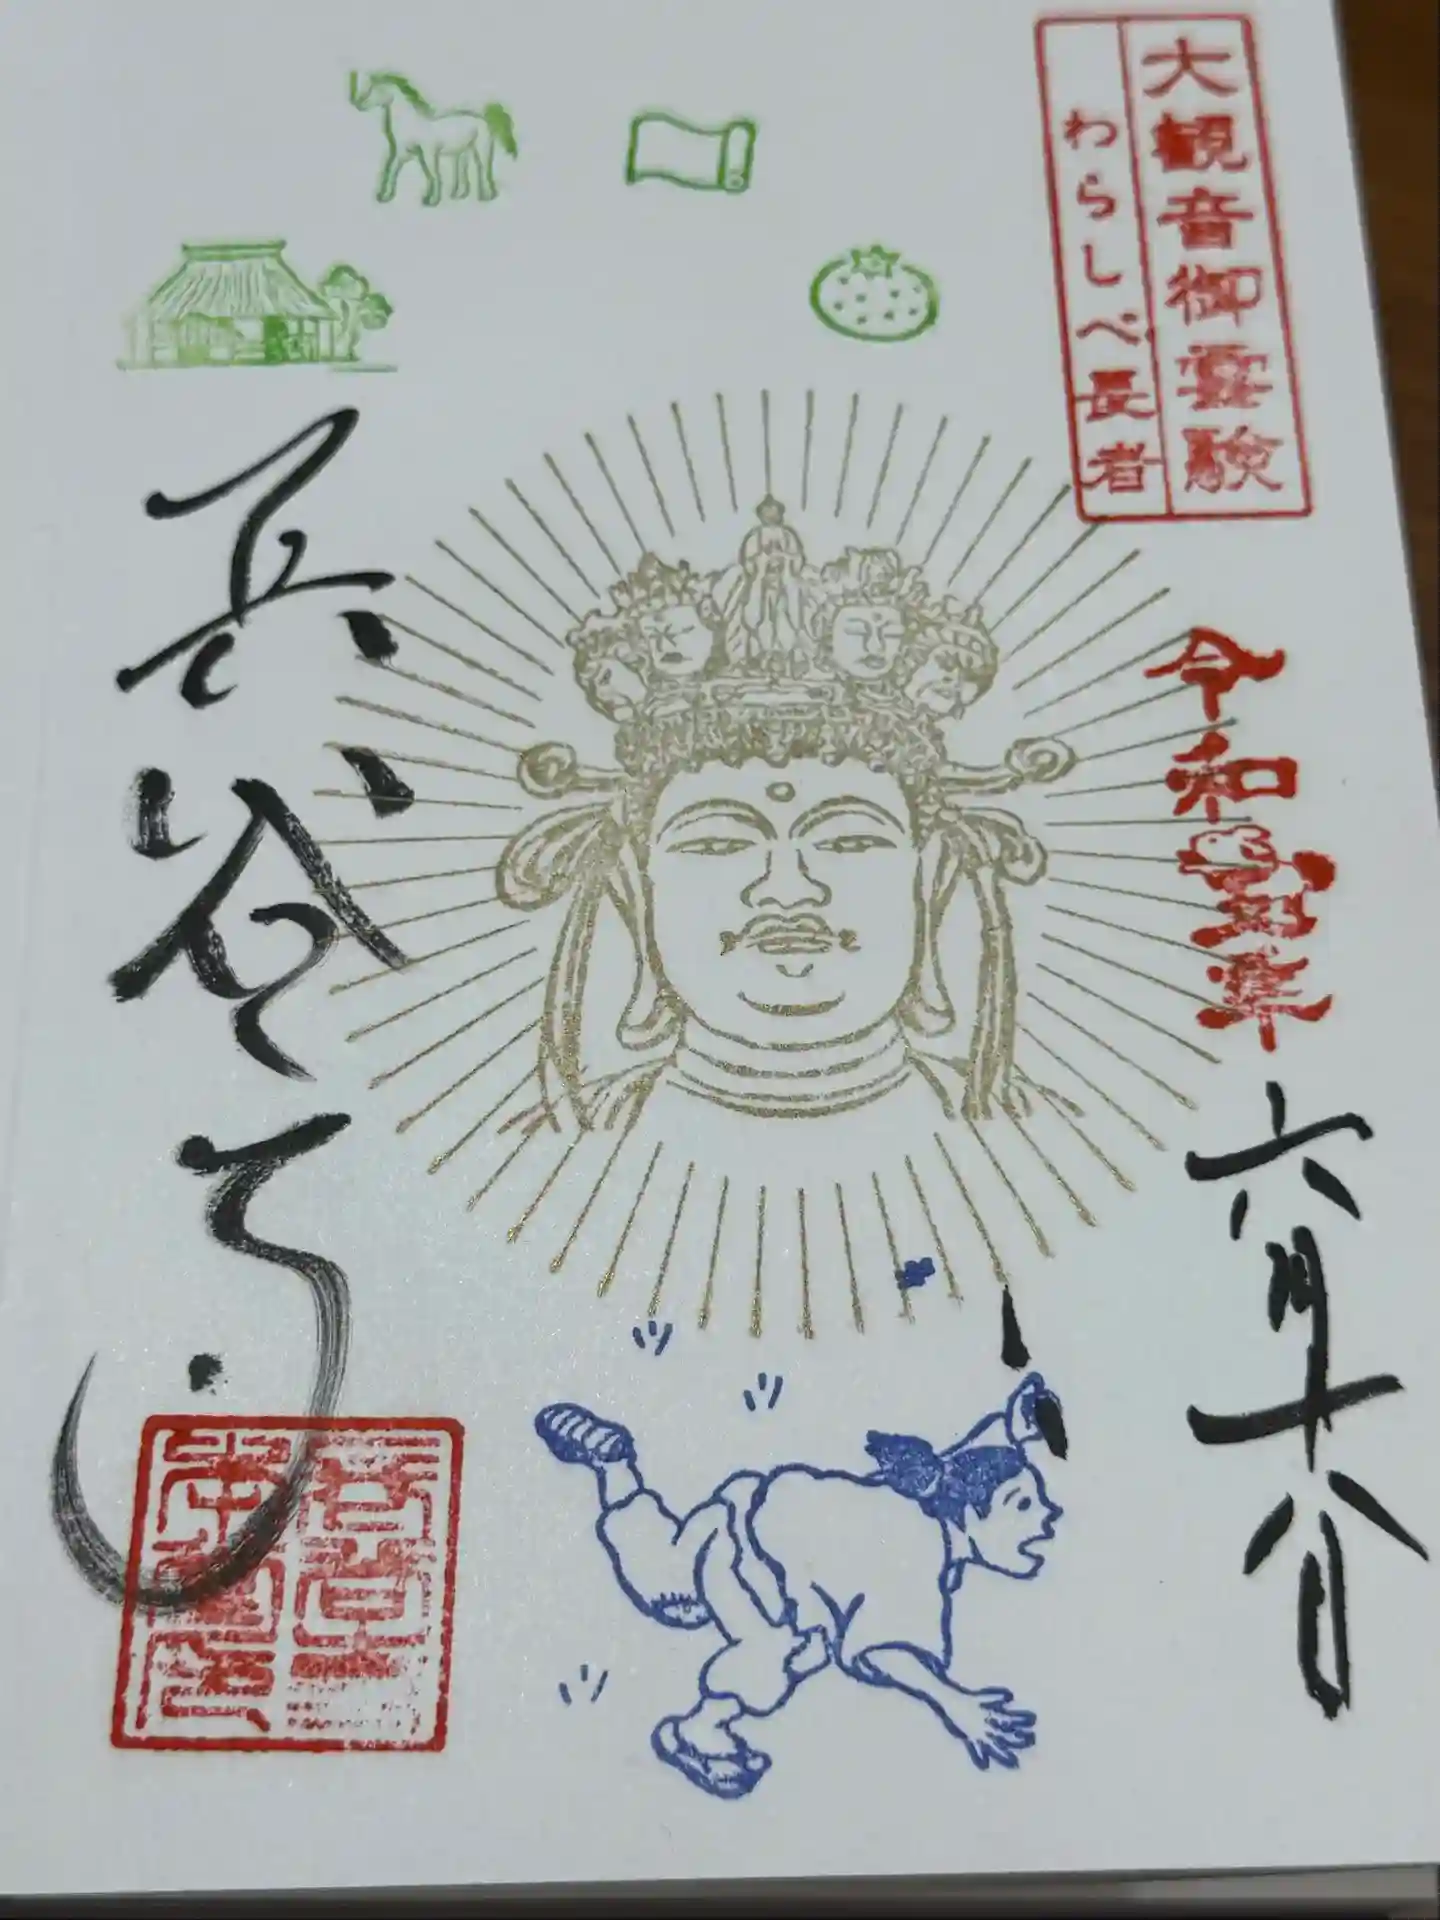 大観音御霊験
わらしべ長者
令和五年六月十八日
長谷寺